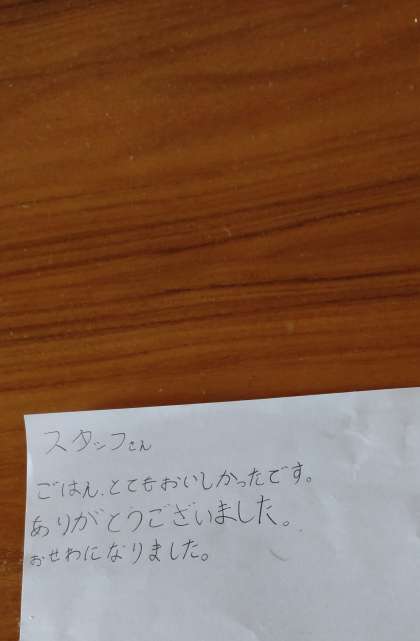 スタッフさん
ごはん、とてもおいしかったです。
ありがとうございました。
おせわになりました。